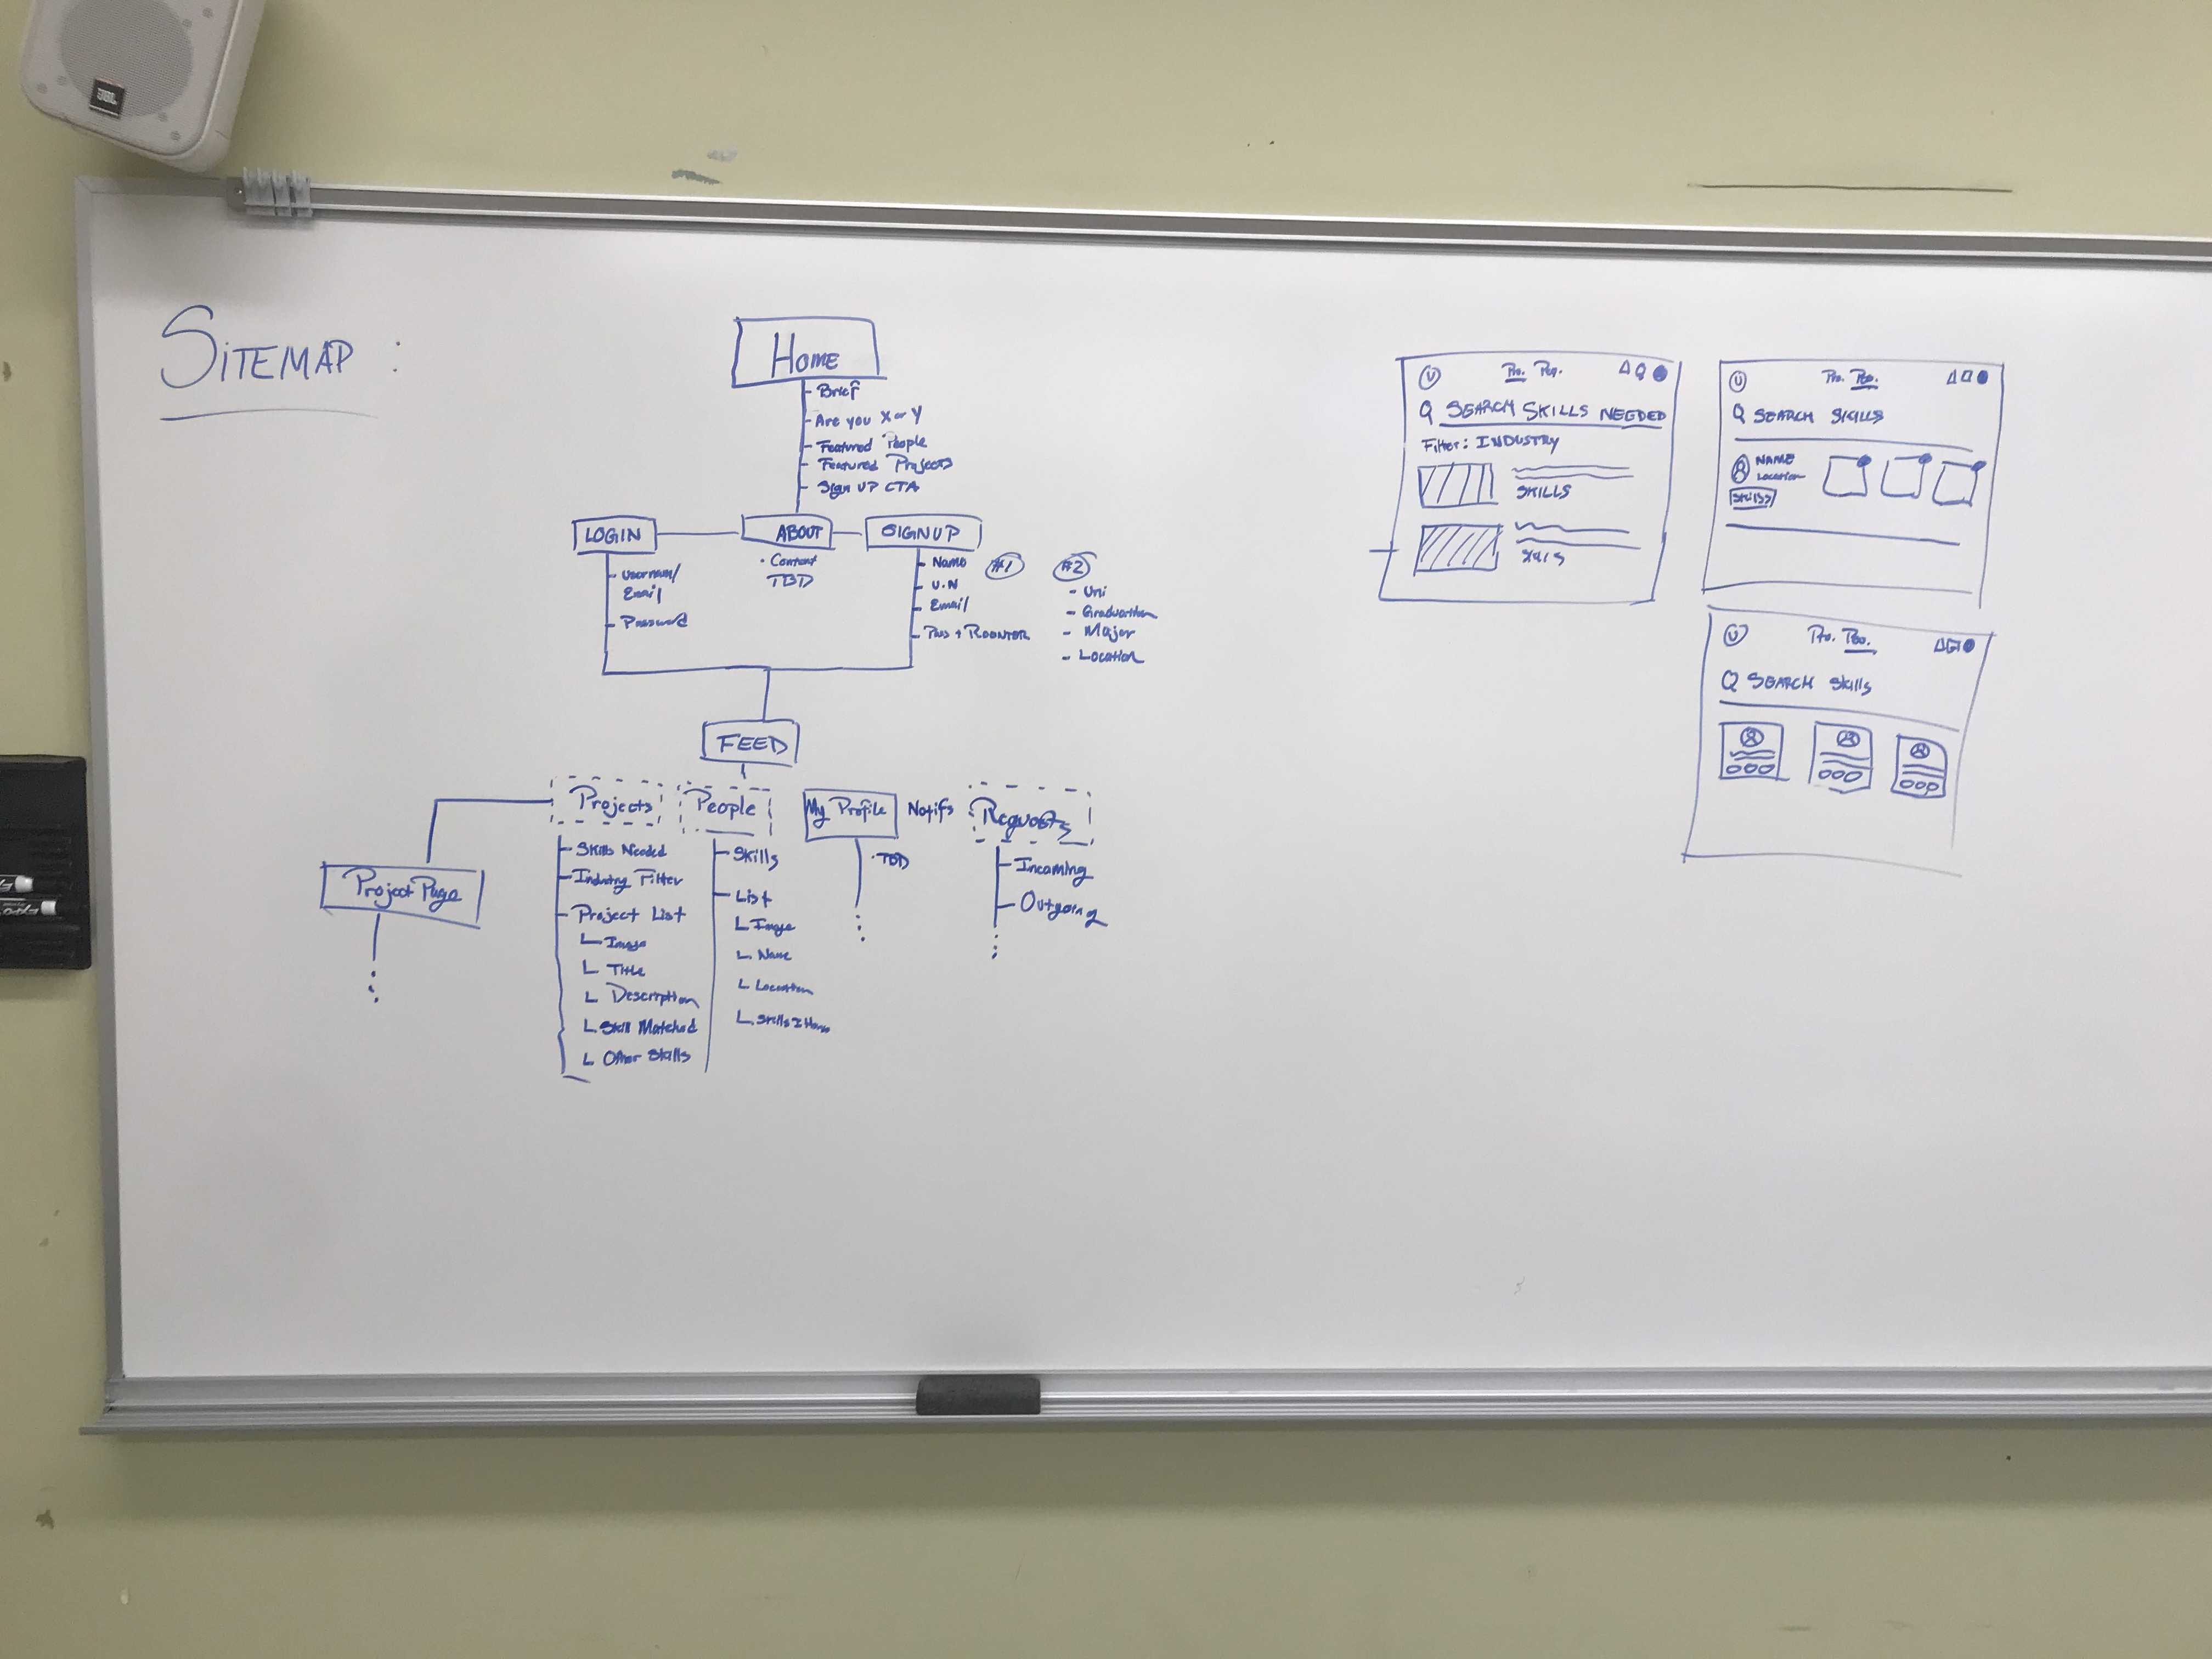 JBL
SITEMAP :
HOME
- Brief
- Are you X or Y
- Featured People
- Featured Projects
- Sign UP CTA
LOGIN
- Username/
Email
- Password
ABOUT
· Content
TBD
SIGNUP
- Name
- U.N
- Email
#1
#2
- Uni
- Graduation
- Major
- Location
FEED
Projects
- Skills Needed
- Industry Filter
- Project List
L Image
L Title
L Description
L Skill Matched
L Other Skills
People
- Skills
- List
L Image
L Name
L Location
L Skills I Have
My Profile
· TBD
Notifs
Requests
- Incoming
- Outgoing
Project Page
U
Pro. Peo.
SEARCH SKILLS NEEDED
Filter: INDUSTRY
SKILLS
SKILLS
U
Pro. Peo.
SEARCH SKILLS
NAME
Location
Skills
U
Pro. Peo.
SEARCH Skills